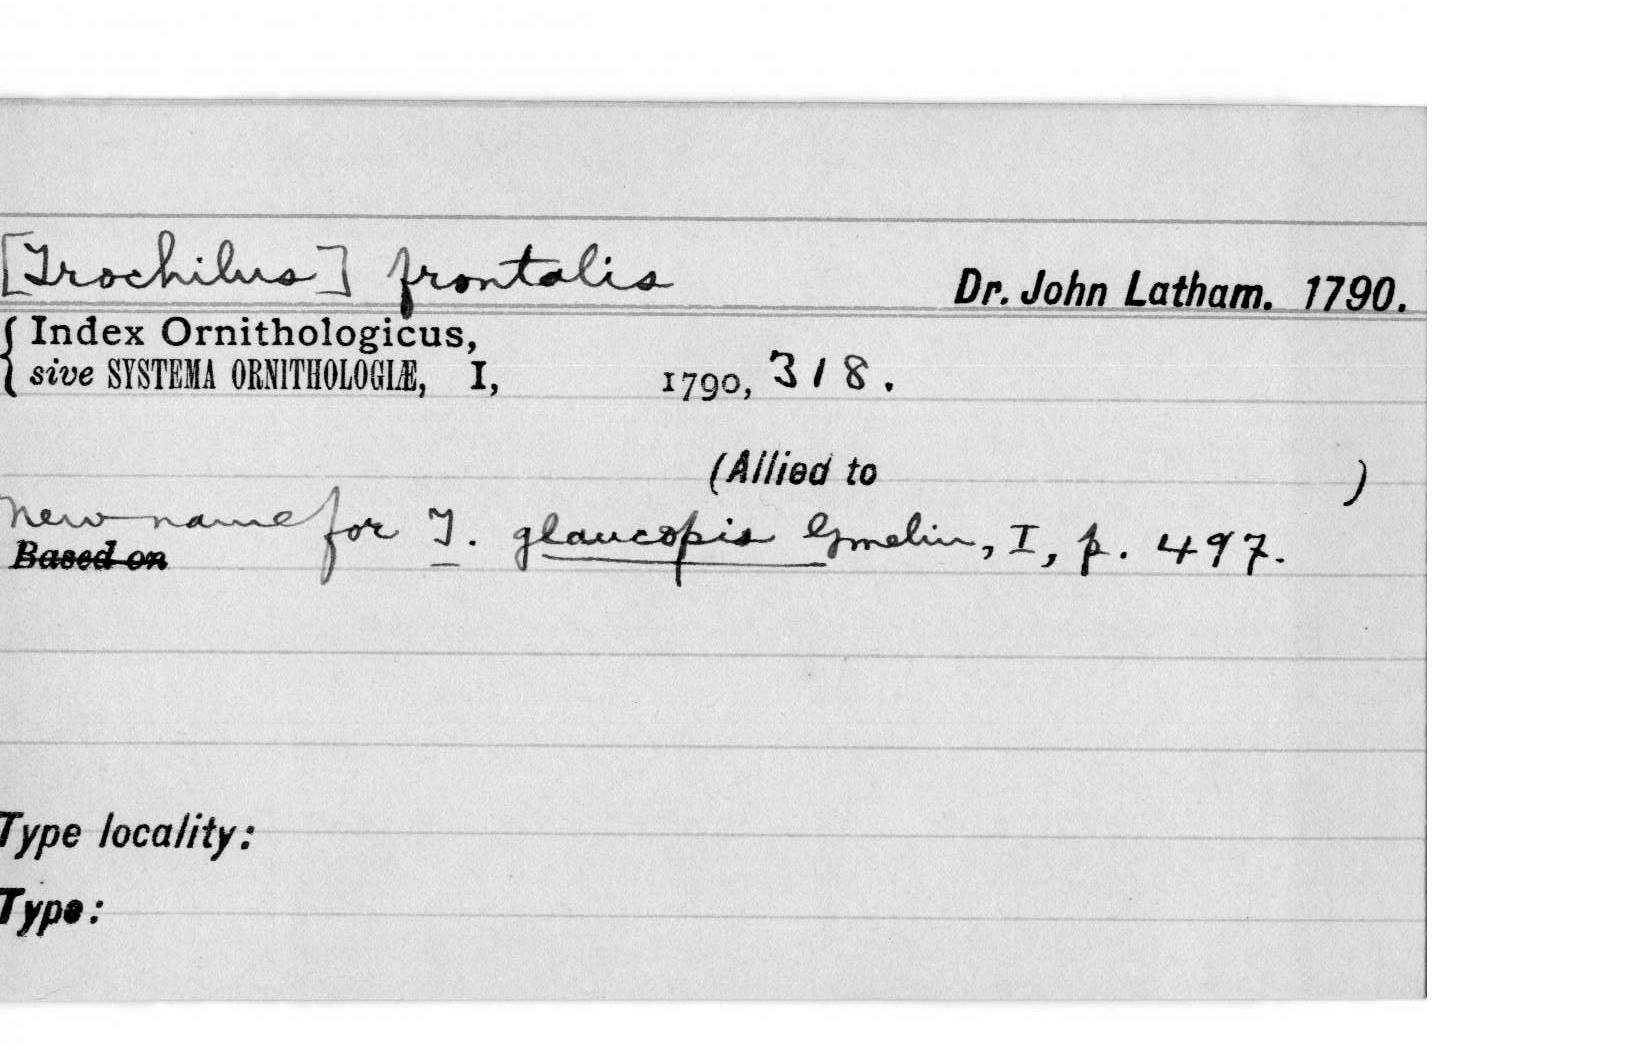 [Trochilus] frontalis Dr. John Latham. 1790.
Index Ornithologicus,
sive SYSTEMA ORNITHOLOGIÆ, I, 1790, 318.
(Allied to )
New name for T. glaucopis Gmelin, I, p. 497.
Based on
Type locality:
Type: